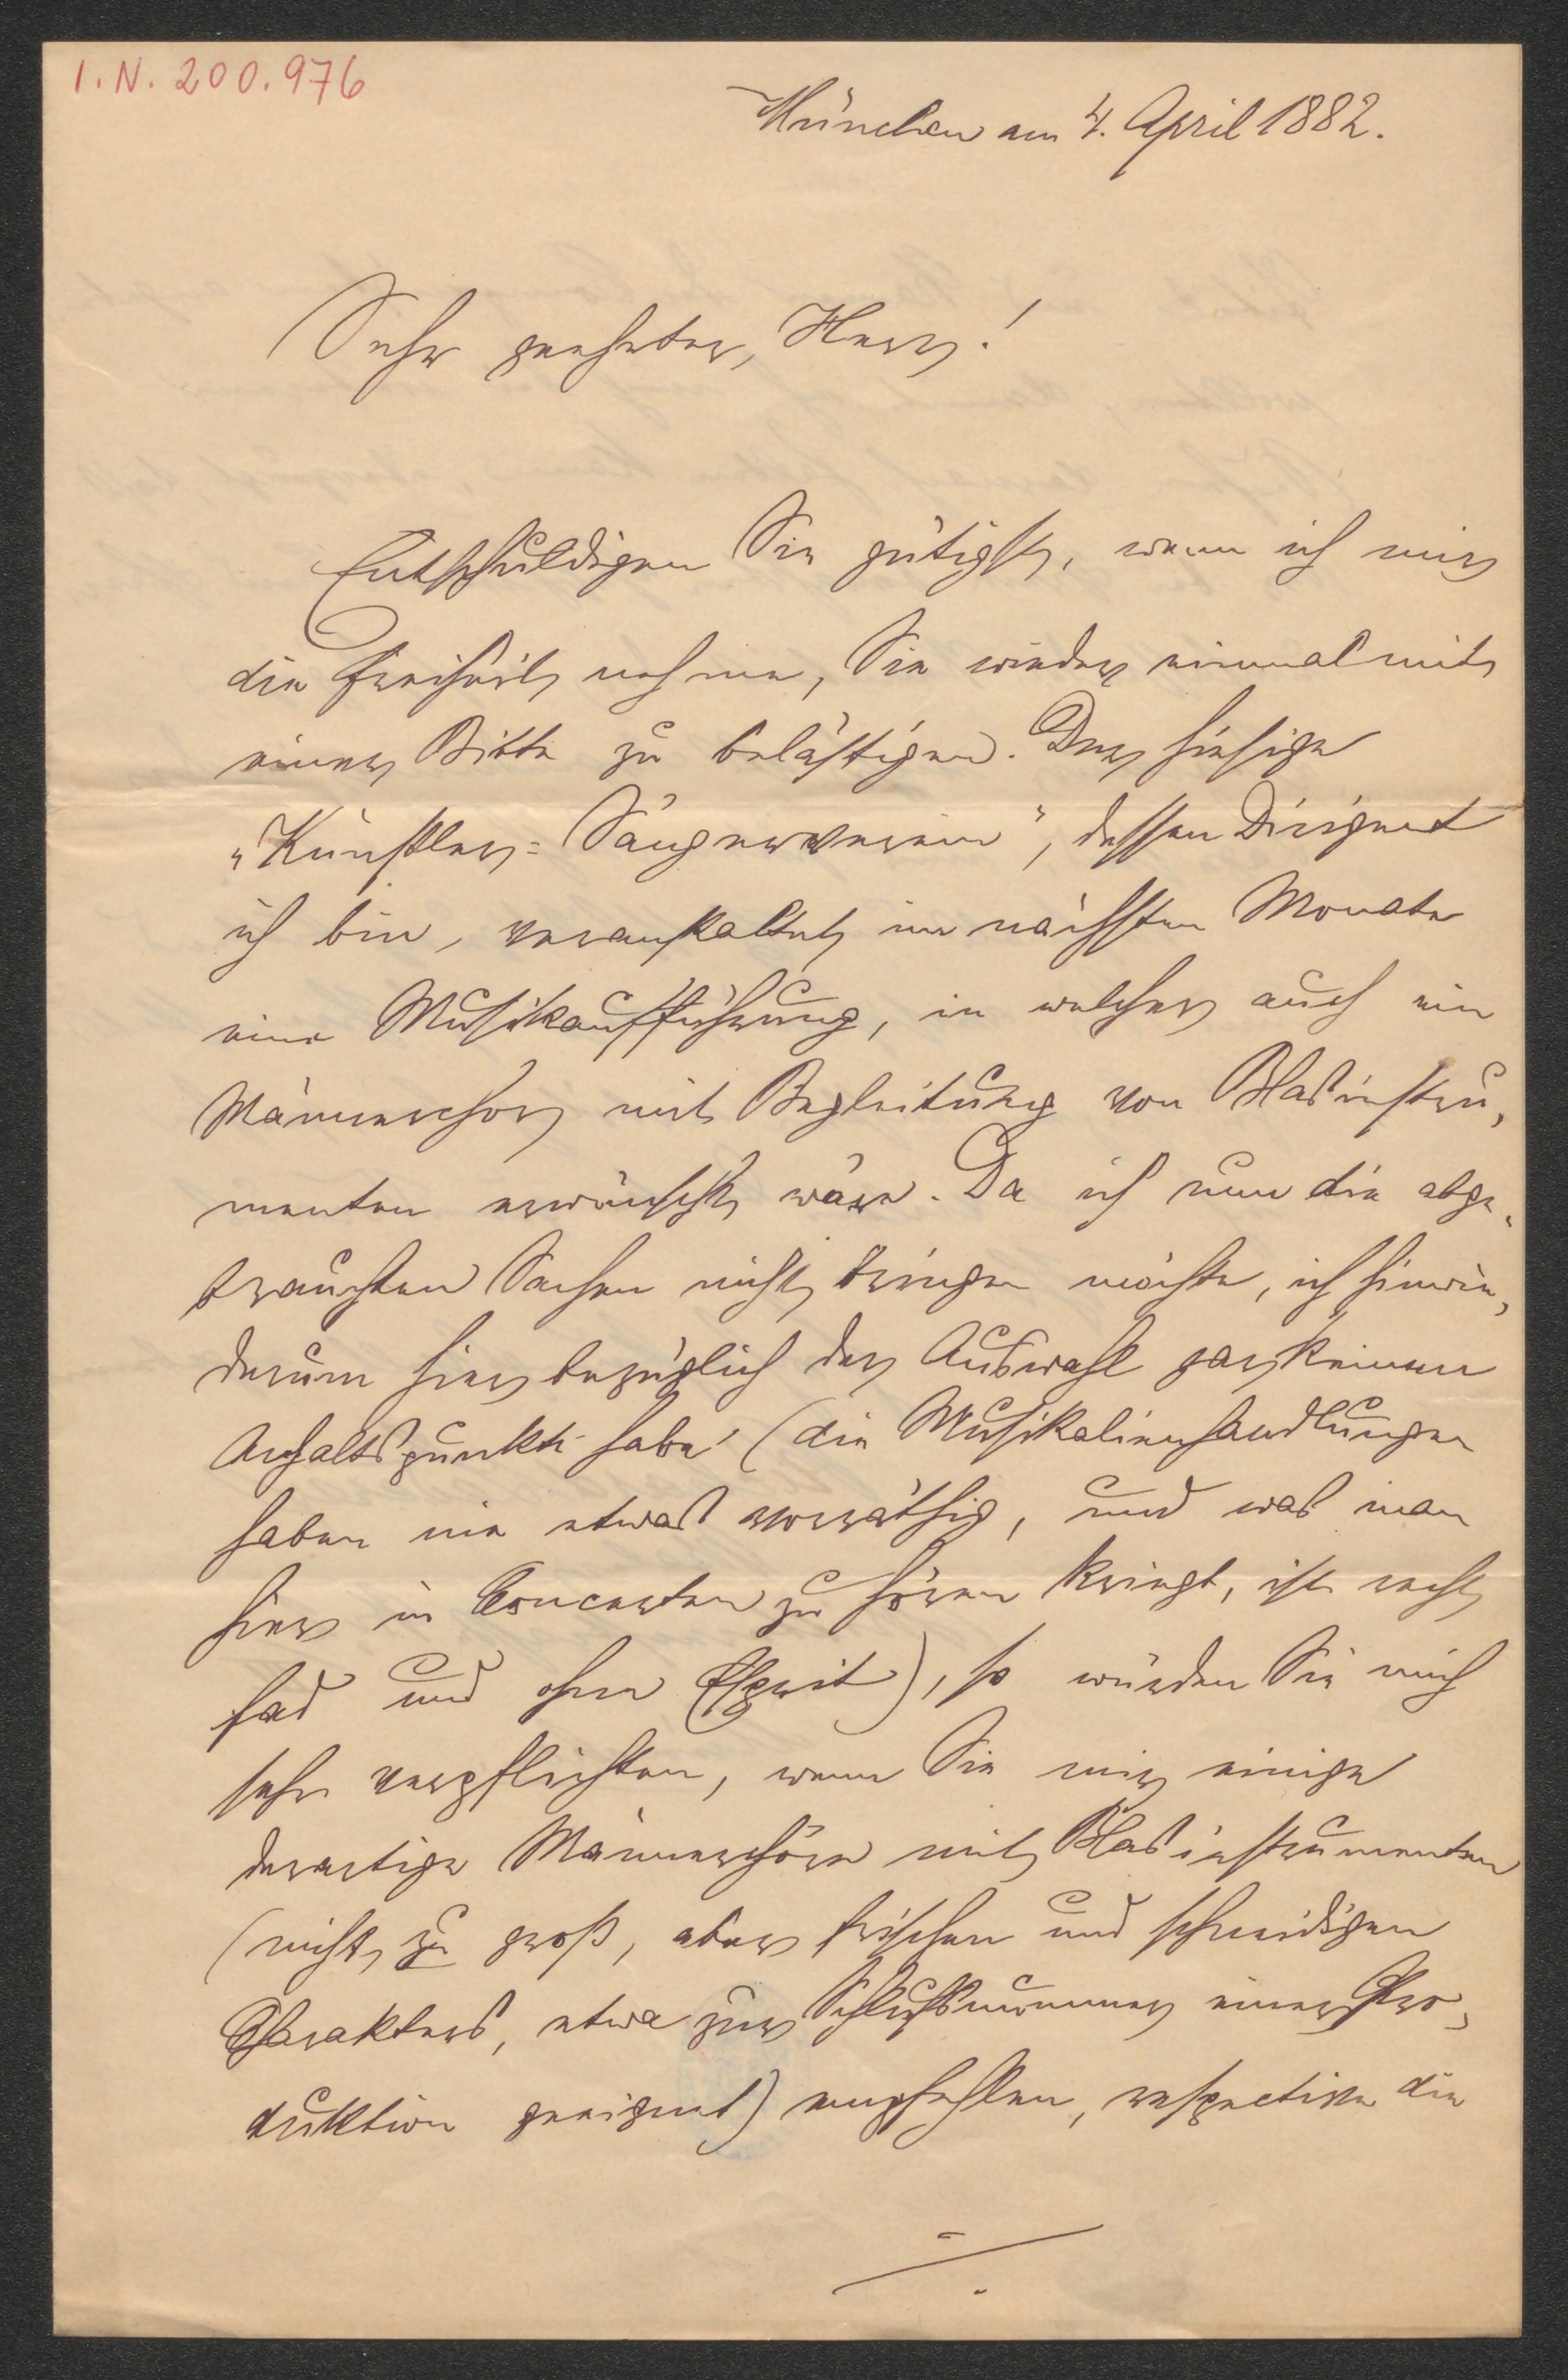 I. N. 200.976
München am 4. April 1882.
Sehr geehrter Herr!
Entschuldigen Sie gütigst, wenn ich mir
die Freiheit nehme, Sie wieder einmal mit
einer Bitte zu belästigen. Der hiesige
„Künstler-Sängerverein", dessen Dirigent
ich bin, veranstaltet im nächsten Monate
eine Musikaufführung, in welcher auch ein
Männerchor mit Begleitung von Blasinstru-
menten erwünscht wäre. Da ich nun die abge-
brauchten Sachen nicht bringen möchte, ich hinwie-
derum hier bezüglich der Auswahl gar keinen
Anhaltspunkt habe (die Musikalienhandlungen
haben nie etwas vorräthig, und was man
hier in Concerten zu hören kriegt, ist recht
fad und ohne Esprit), so würden Sie mich
sehr verpflichten, wenn Sie mir einige
derartige Männerchöre mit Blasinstrumenten
(nicht zu groß, aber frischen und schneidigen
Charakters, etwa zur Schlußnummer einer Pro-
duktion geeignet) empfehlen, respective die